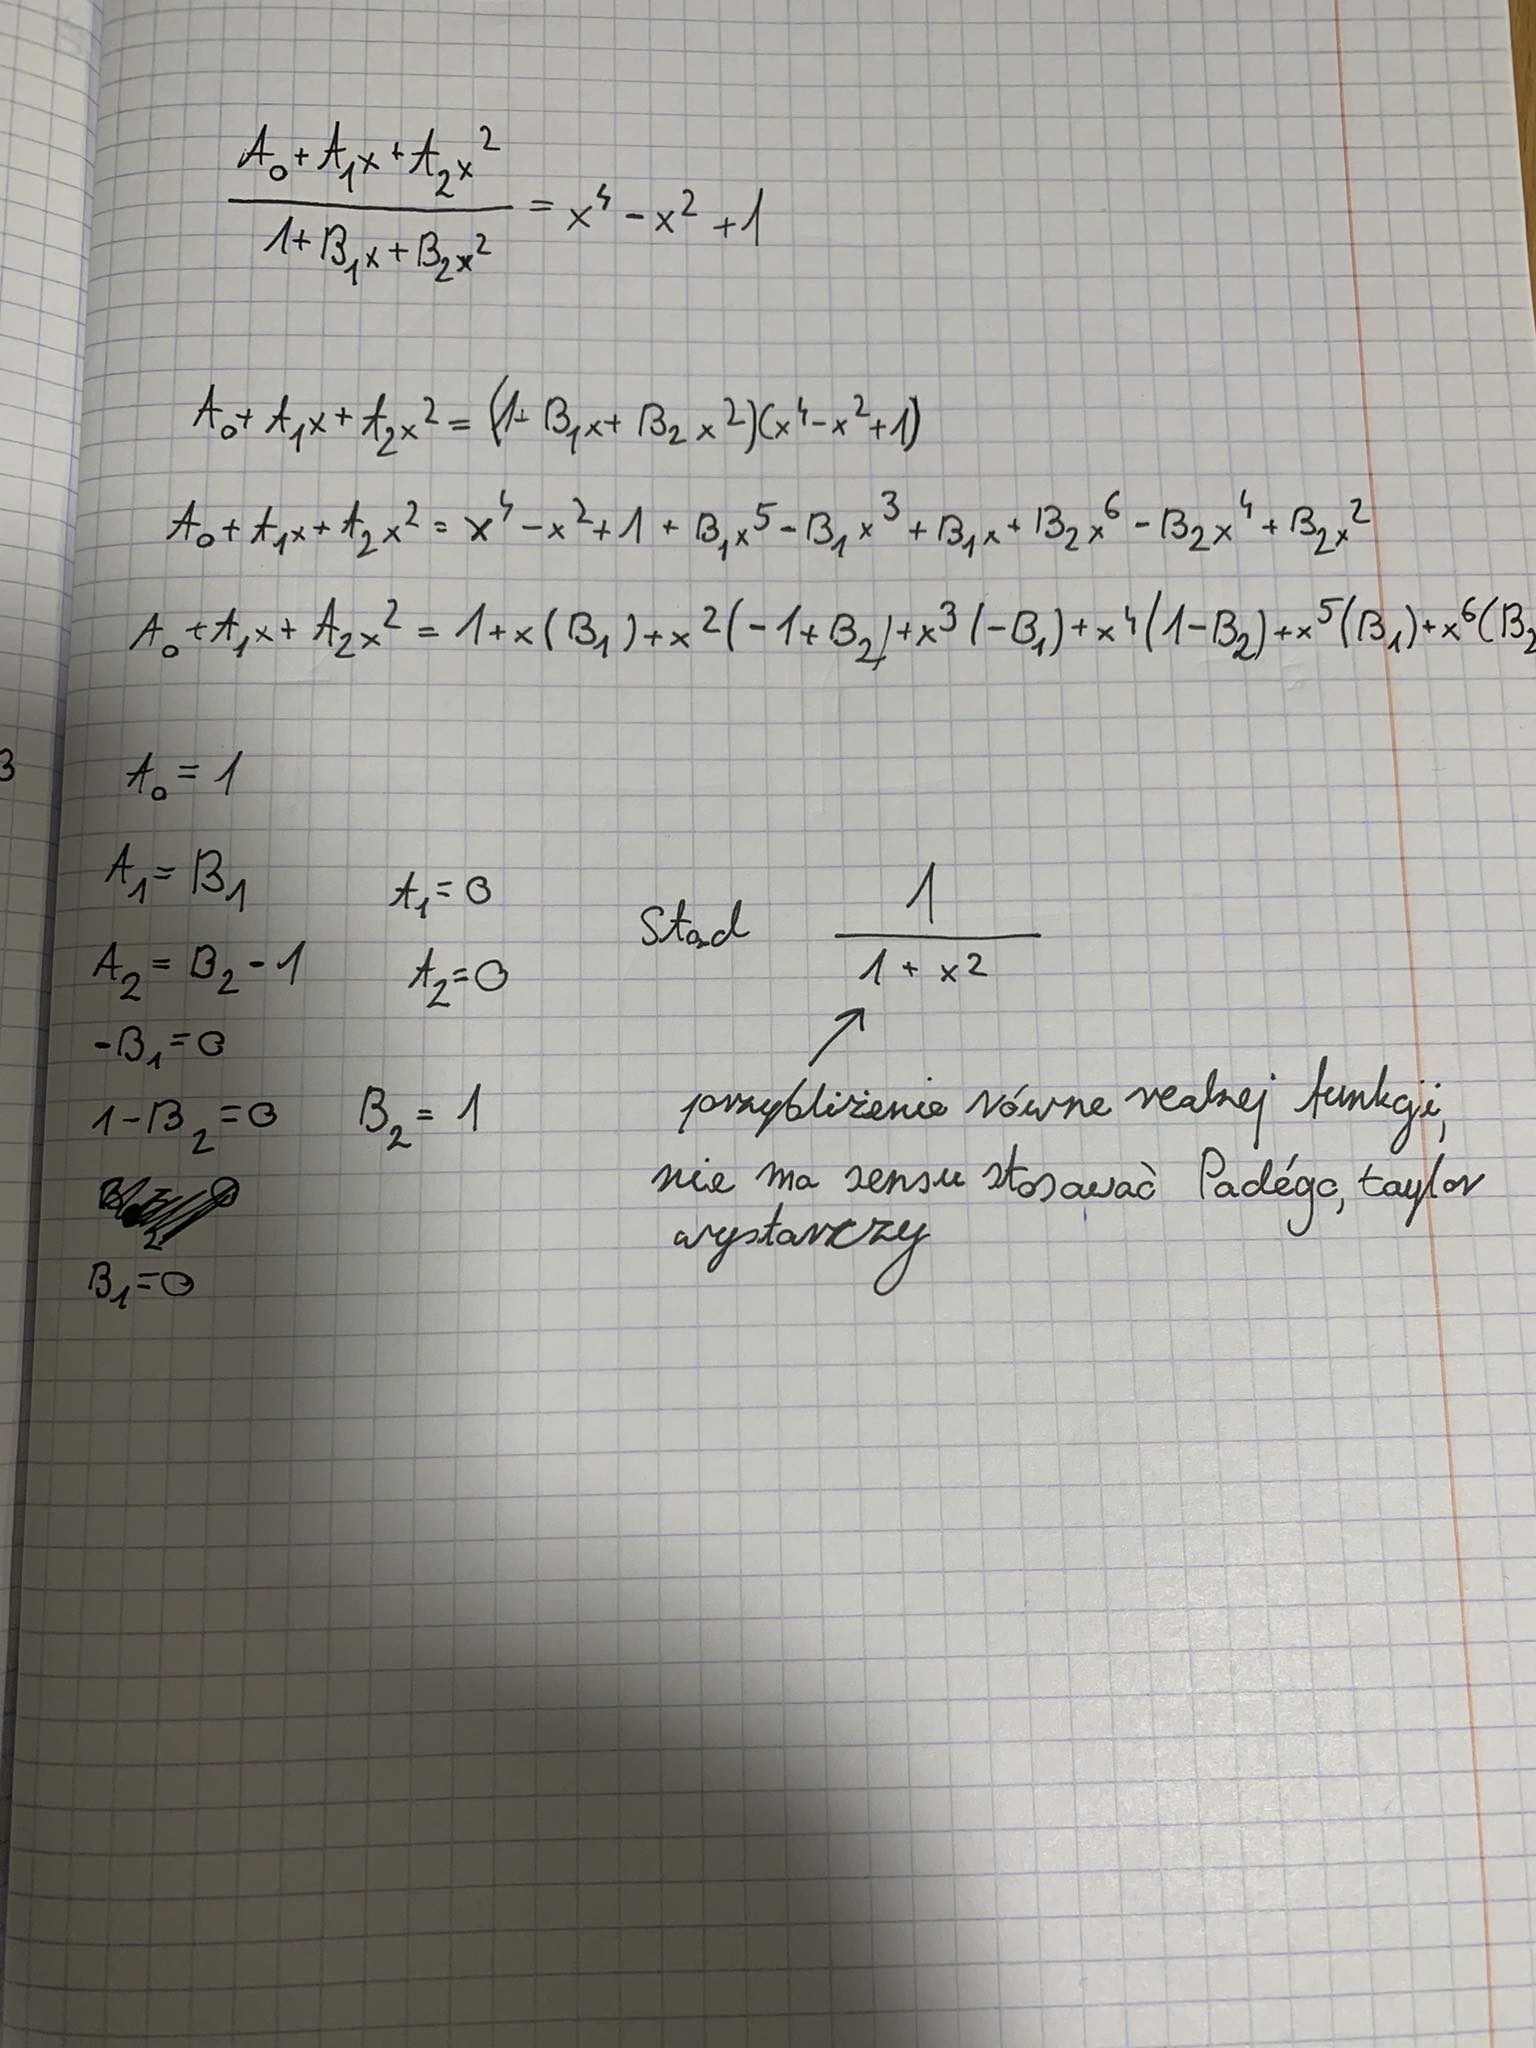 (A₀ + A₁x + A₂x²) / (1 + B₁x + B₂x²) = x⁴ - x² + 1
A₀ + A₁x + A₂x² = (1 + B₁x + B₂x²)(x⁴ - x² + 1)
A₀ + A₁x + A₂x² = x⁴ - x² + 1 + B₁x⁵ - B₁x³ + B₁x + B₂x⁶ - B₂x⁴ + B₂x²
A₀ + A₁x + A₂x² = 1 + x(B₁) + x²(-1 + B₂) + x³(-B₁) + x⁴(1 - B₂) + x⁵(B₁) + x⁶(B₂
3
A₀ = 1
A₁ = B₁ A₁ = 0
A₂ = B₂ - 1 A₂ = 0
-B₁ = 0
1 - B₂ = 0 B₂ = 1
B₁ = 0
Stąd 1 / (1 + x²)
przybliżenie równe realnej funkcji,
nie ma sensu stosować Padégo, taylor
wystarczy